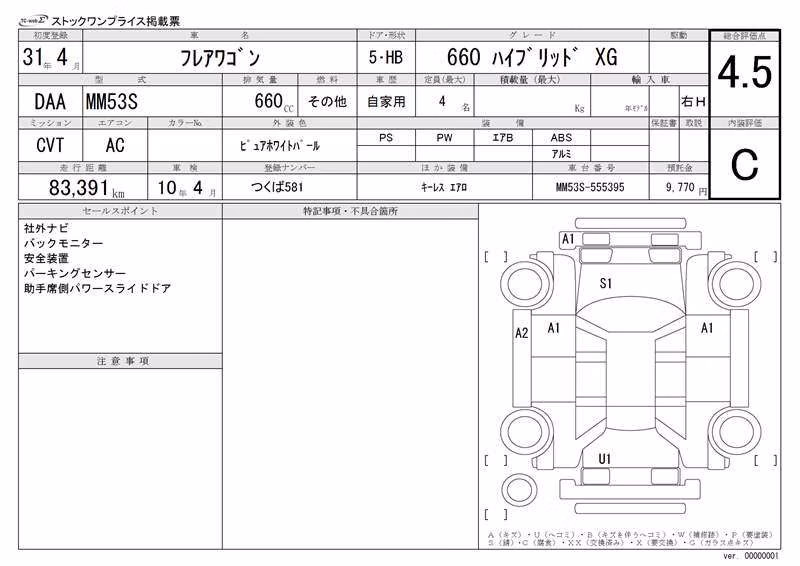 TC-webΣ ストックワンプライス掲載票
初度登録 車名 ドア・形状 グレード 駆動 総合評価点
31年 4月 フレアワゴン 5・HB 660 ハイブリッド XG 4.5
型式 排気量 燃料 車歴 定員(最大) 積載量(最大) 輸入車
DAA MM53S 660CC その他 自家用 4名 Kg 年モデル 右H
ミッション エアコン カラーNo. 外装色 装備 保証書 取説 内装評価
CVT AC ピュアホワイトパール PS PW エアB ABS C
アルミ
走行距離 車検 登録ナンバー ほか装備 車台番号 預託金
83,391km 10年 4月 つくば581 キーレス エアロ MM53S-555395 9,770円
セールスポイント 特記事項・不具合箇所
社外ナビ
バックモニター
安全装置
パーキングセンサー
助手席側パワースライドドア
注意事項
A1
[ ] [ ]
S1
A2 A1 A1
U1
[ ] [ ]
[ ]
A(キズ)・U(ヘコミ)・B(キズを伴うヘコミ)・W(補修跡)・P(要塗装)
S(錆)・C(腐食)・XX(交換済み)・X(要交換)・G(ガラス点キズ)
ver. 00000001